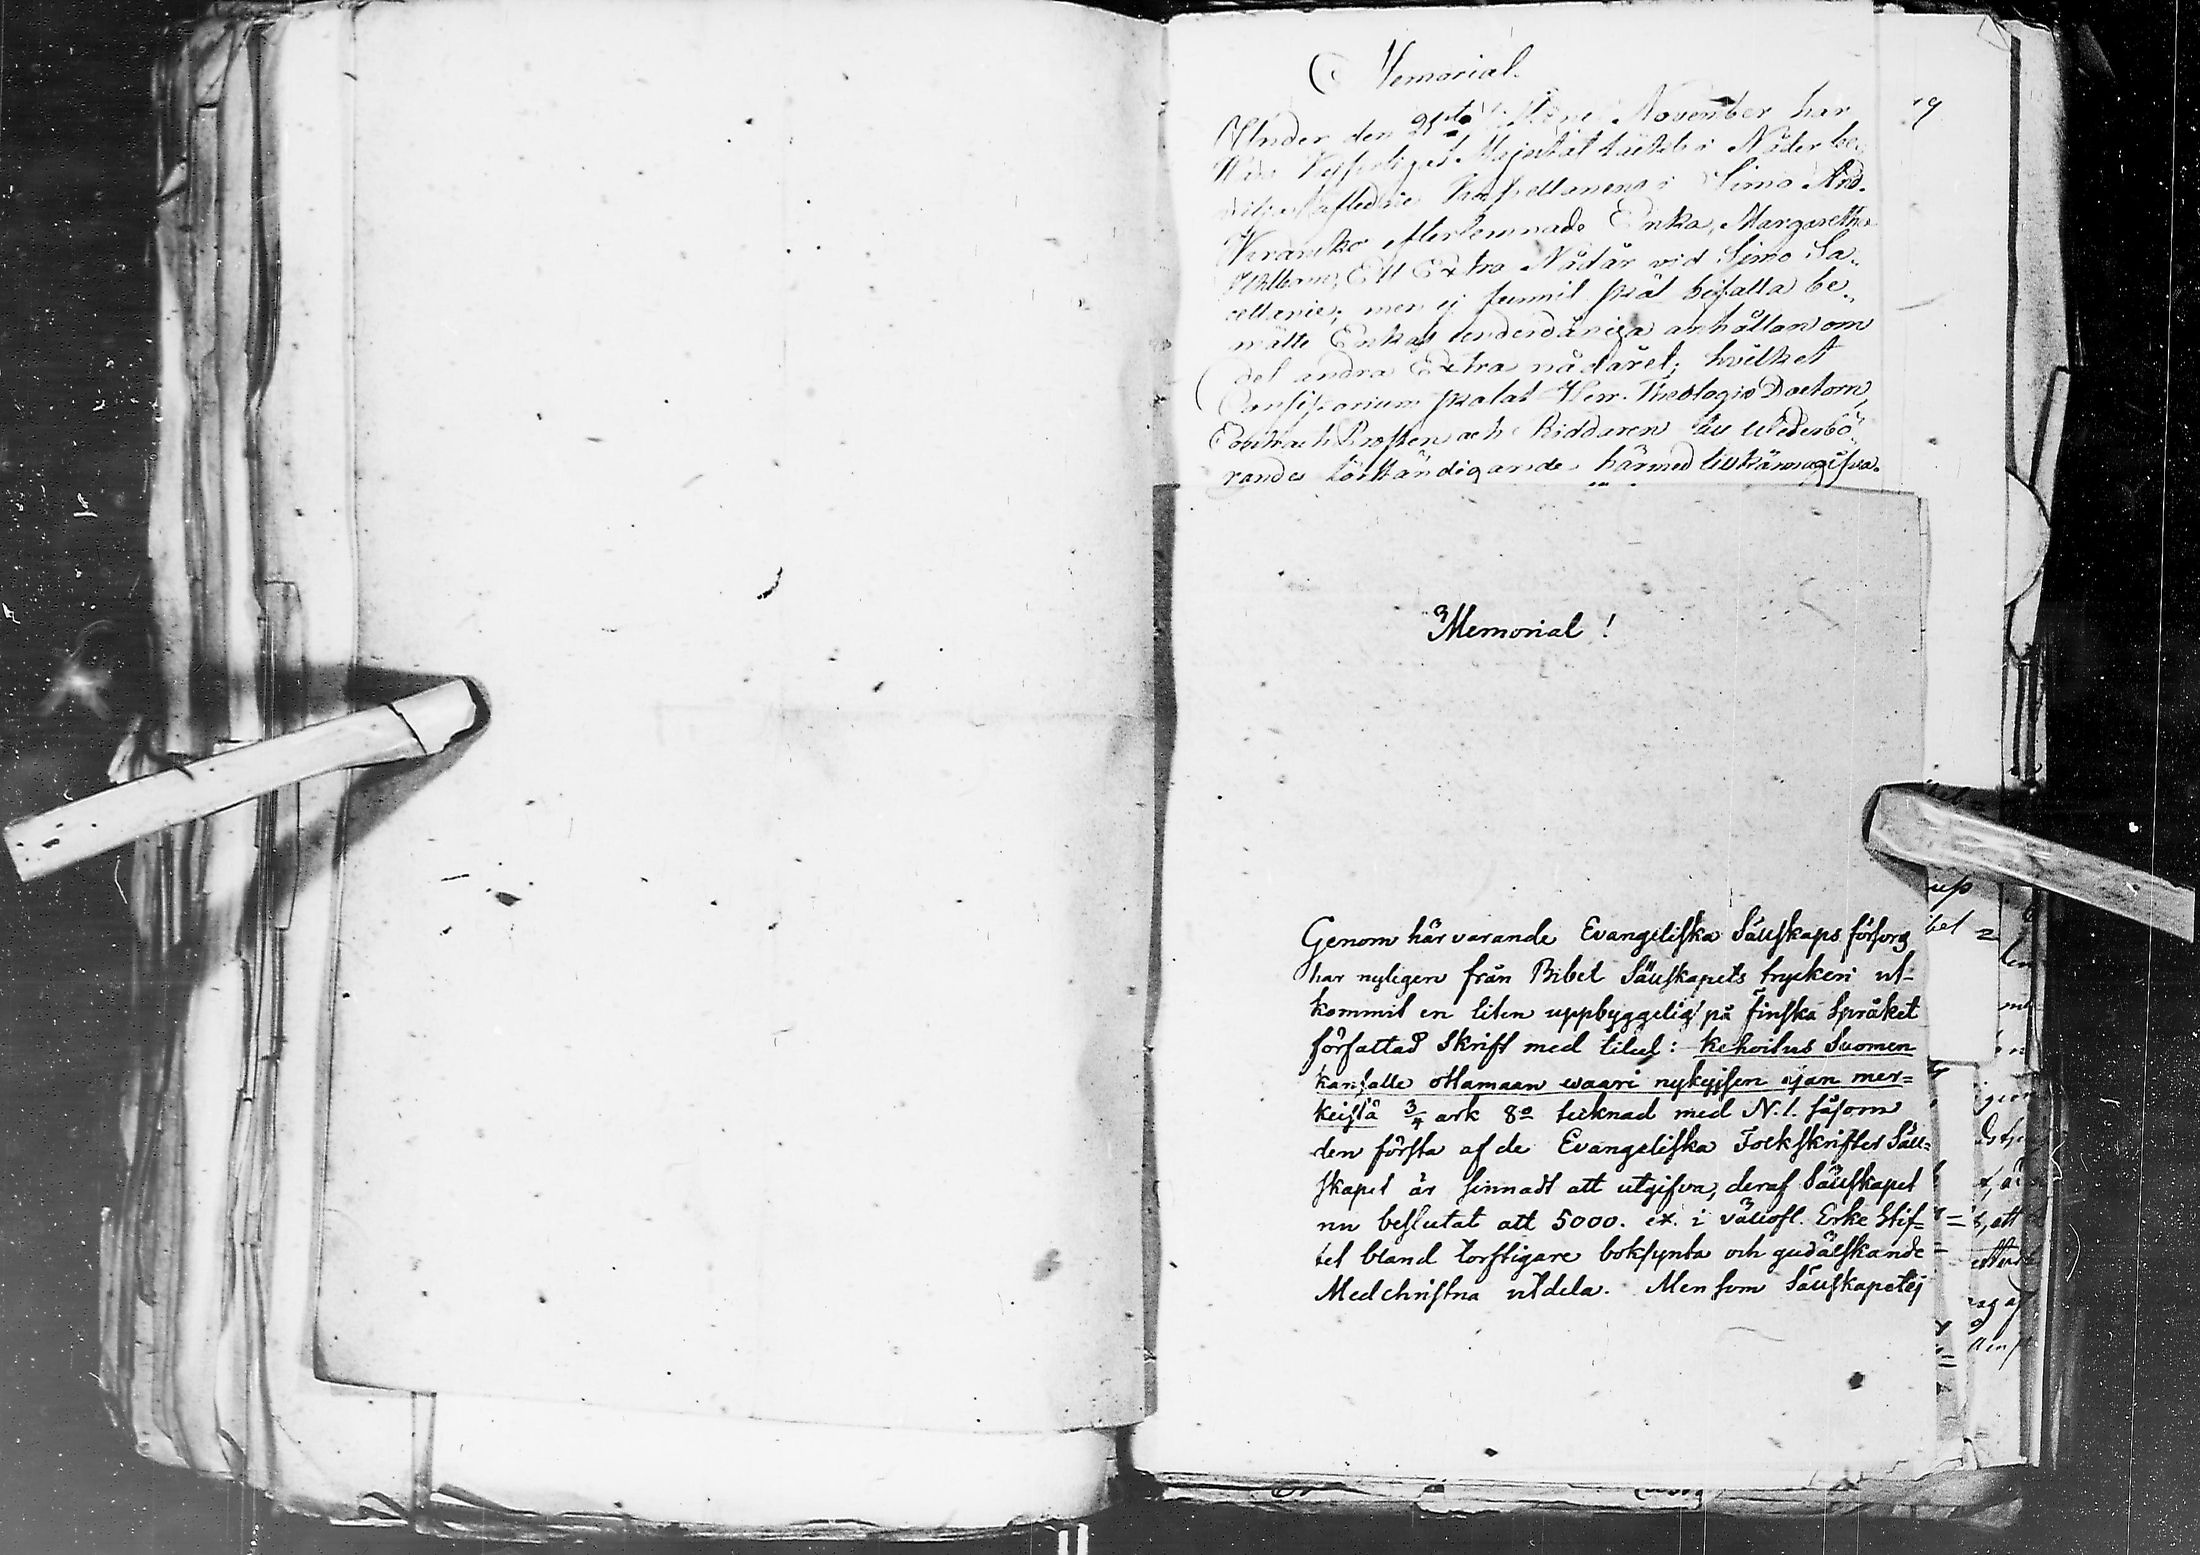 Memorial.
19
Under den 21sta November har
Hans Kejserliga Majestät täckts i Nåder be-
vilja aflidne Kapellanens i Simo And.
Kranck efterlemnade Enka, Margaretha
Ett Extra Nådår vid Simo Ca-
pellanie; men ej funnit skäl bifalla be-
mälte Enkas underdåniga anhållan om
det andra Extra nådåret; hvilket
Consistorium skolat Herr Theologiæ Doctorn,
Contracts Prosten och Riddaren till wederbö-
randes förständigande härmed tillkännagifva.
Memorial!
Genom härvarande Evangeliska Sällskaps försorg
har nyligen från Bibel Sällskapets tryckeri ut-
kommit en liten uppbyggelig på finska Språket
författad Skrift med titul: Kehoitus Suomen
kansalle ottamaan waari nykyisen ajan mer=
keistä 3/4 ark 8o tecknad med N. 1. såsom
den första af de Evangeliska Folkskrifter Säll=
skapet är sinnadt att utgifva, deraf Sällskapet
nu beslutat att 5000. ex. i vällofl. Erke Stif=
tet bland torftigare boksynta och gudälskande
Medchristna utdela. Men som Sällskapet ej
up
bet